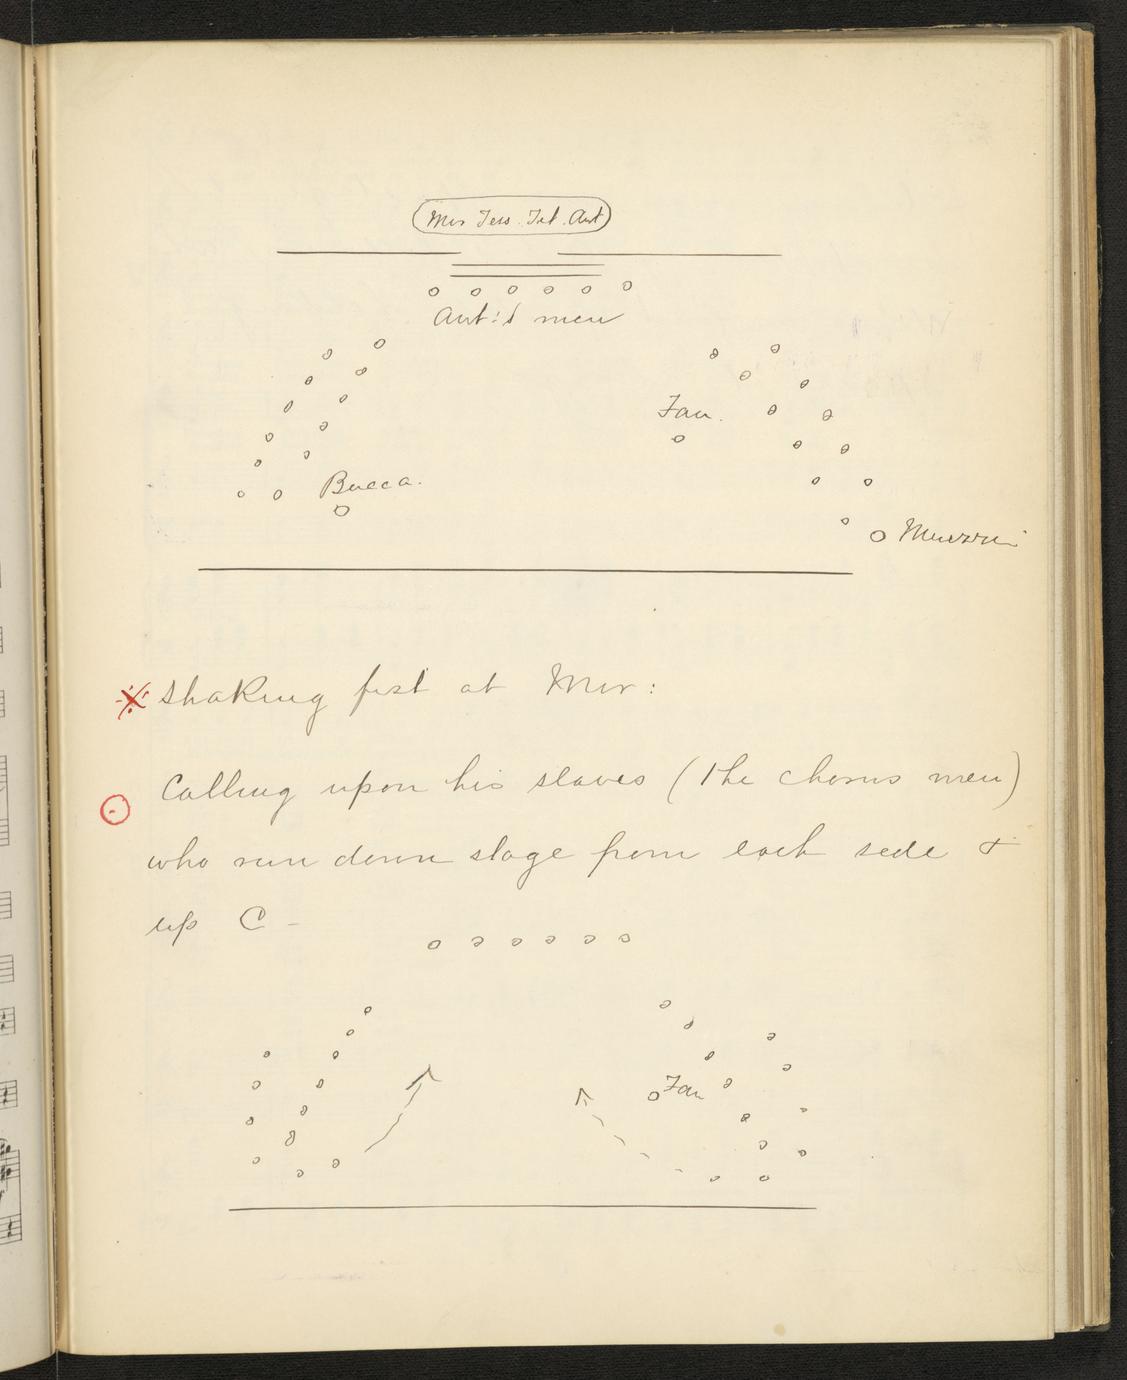 Mir Jess. Tit. Ant
Ant:'s men
Fan.
Bucca.
Murzu:
shaking fist at Mir:
Calling upon his slaves (the chorus men)
who run down stage from each side &
up C –
Fan